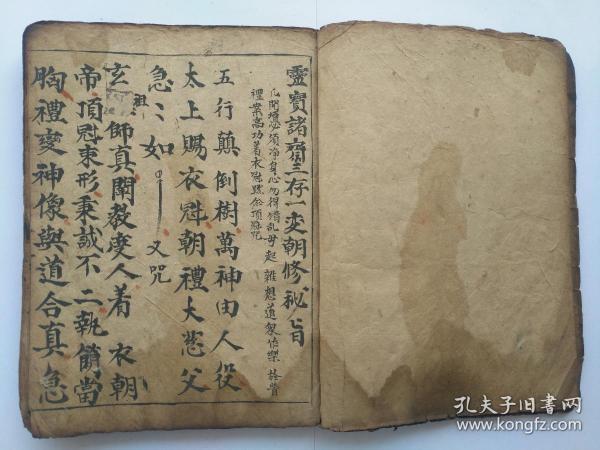 靈寶諸齋三存一变朝修秘旨
凡開壇必須净身心勿得猜乱毋起雜想道眾作樂
禮案高功着衣
五行顛倒樹萬神由人役
太上賜衣尅朝禮大慈父
急〻如　又咒
玄祖師真闡教度人着衣朝
帝頂尅束形秉誠不二執簡當
胸禮变神像與道合真急
孔夫子旧书网
www.kongfz.com